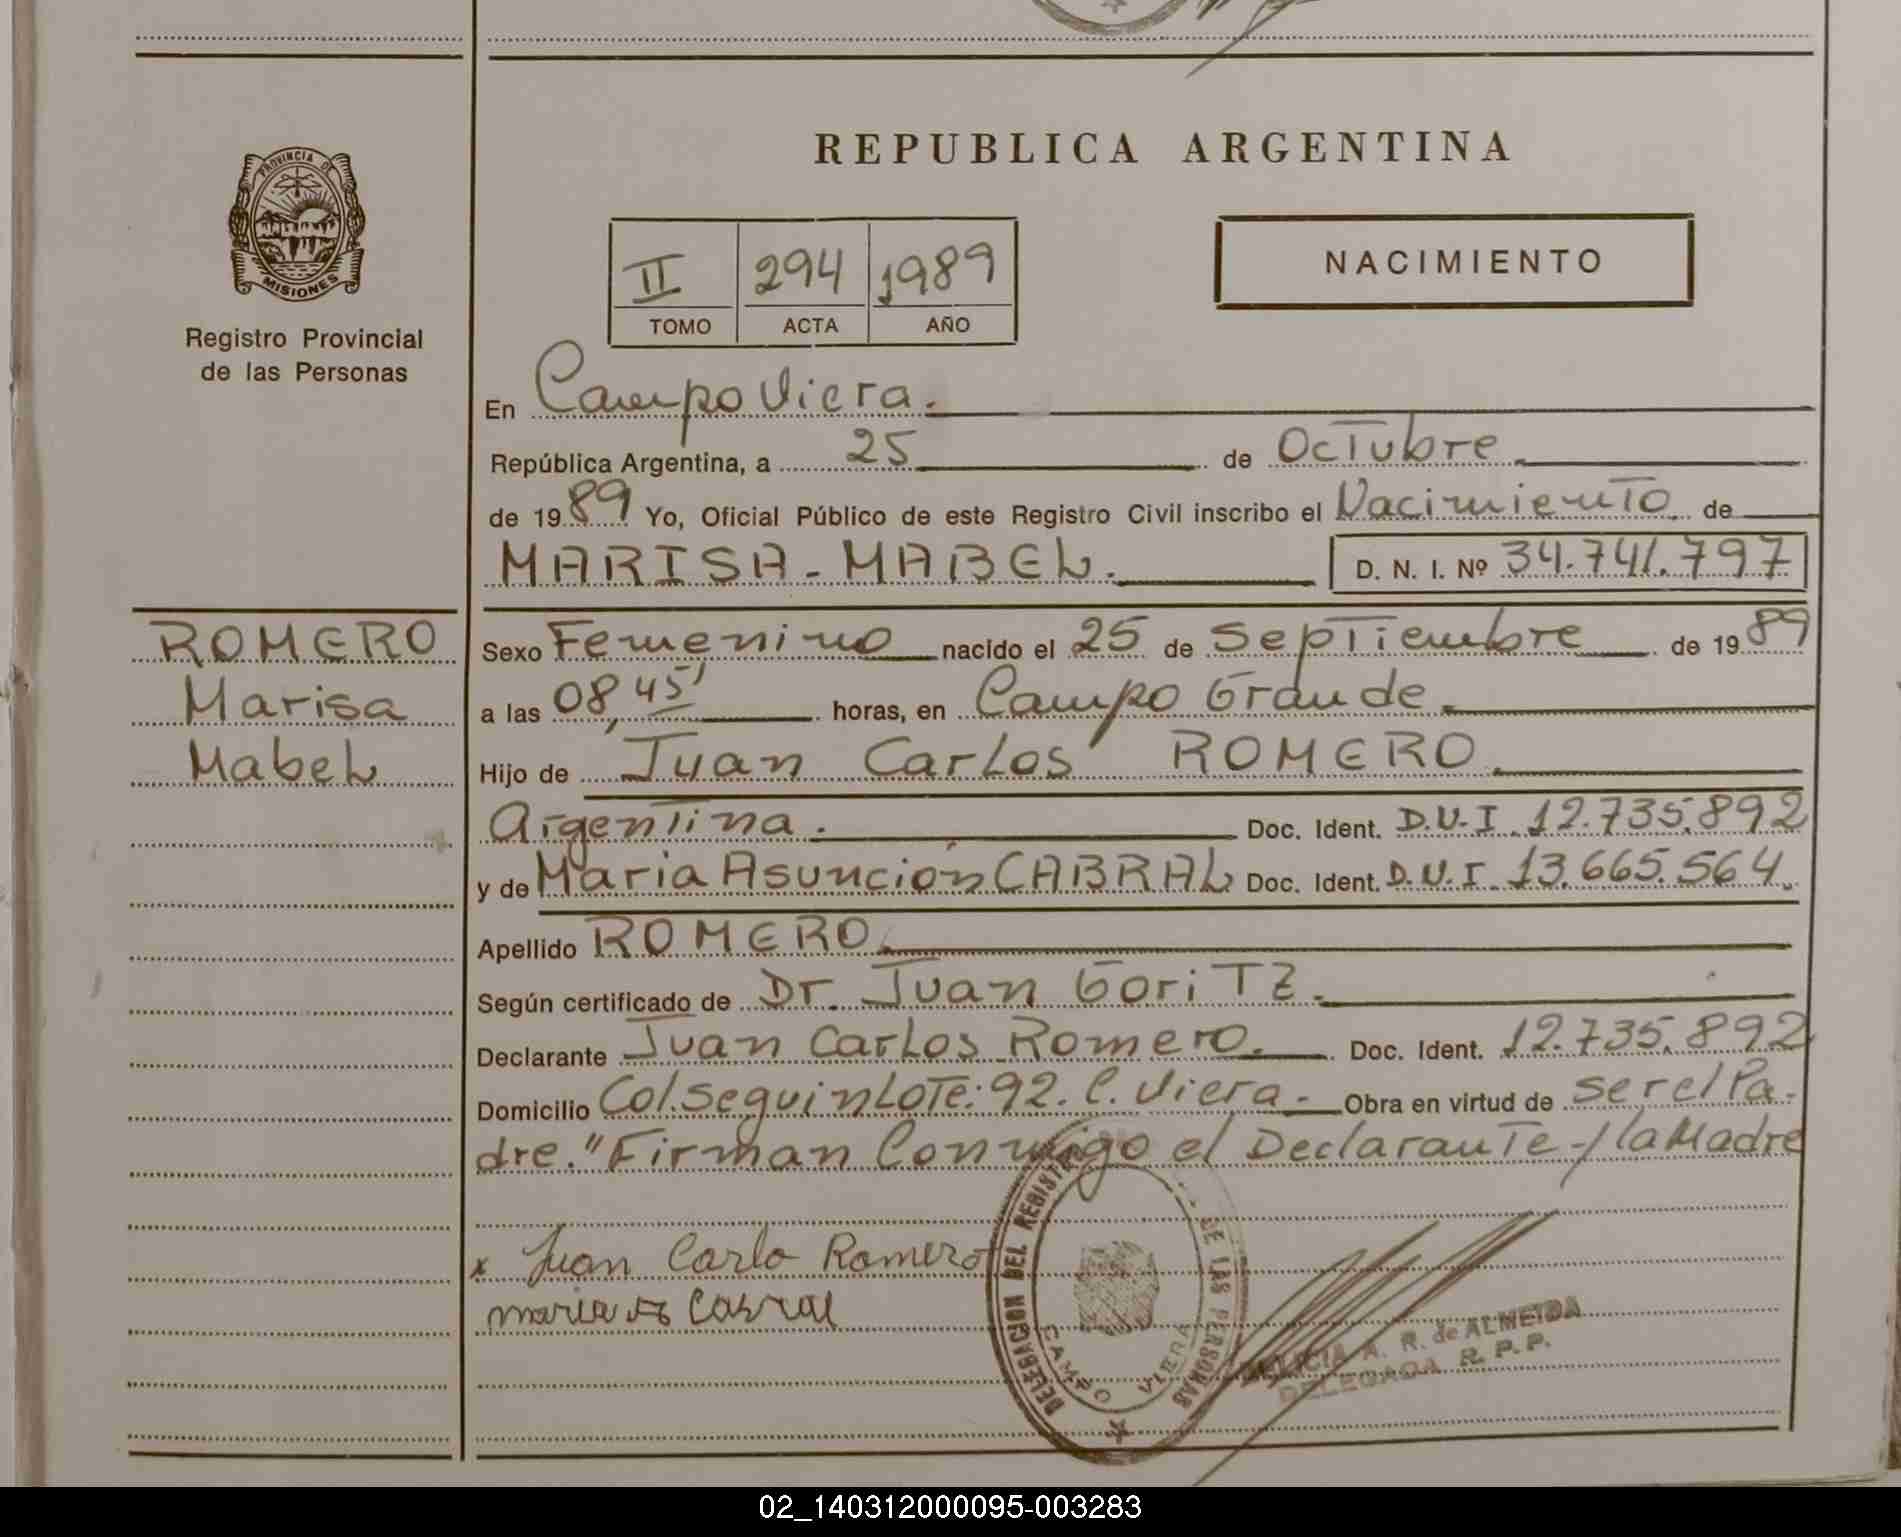 REPUBLICA ARGENTINA
PROVINCIA DE
MISIONES
Registro Provincial
de las Personas
II 294 1989
TOMO ACTA AÑO
NACIMIENTO
En Campo Viera.
República Argentina, a 25 de Octubre
de 1989 Yo, Oficial Público de este Registro Civil inscribo el Nacimiento de
MARISA-MABEL. D. N. I. Nº 34.741.797
ROMERO
Marisa
Mabel
Sexo Femenino nacido el 25 de Septiembre de 1989
a las 08,45' horas, en Campo Grande.
Hijo de Juan Carlos ROMERO.
Argentina. Doc. Ident. D.U.I 12.735.892
y de Maria Asunción CABRAL Doc. Ident. D.U.I. 13.665.564.
Apellido ROMERO.
Según certificado de Dr. Juan GoriTz.
Declarante Juan Carlos Romero. Doc. Ident. 12.735.892
Domicilio Col. Seguin Lote: 92. C. Viera. Obra en virtud de ser el Pa-
dre." Firman Conmigo el Declarante-/la Madre
x Juan Carlo Romero
maria Cabral
DELEGACION DEL REGISTRO DE LAS PERSONAS
CAMPO VIERA
A. R. de ALMEIDA
DELEGADA R. P. P.
02_140312000095-003283